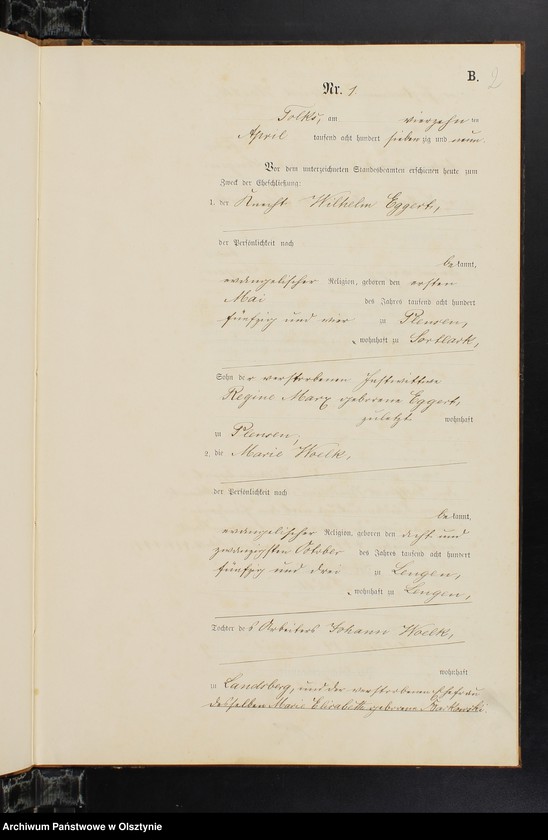 B. 2
Nr. 1
Tolks, am vierzehn ten
April tausend acht hundert sieben zig und neun.
Vor dem unterzeichneten Standesbeamten erschienen heute zum
Zweck der Eheschließung:
1. der Knecht Wilhelm Eggert,
der Persönlichkeit nach
be kannt,
evangelischer Religion, geboren den ersten
Mai des Jahres tausend acht hundert
fünfzig und vier zu Plensen,
, wohnhaft zu Sortlack,
Sohn der verstorbenen Instwittwe
Regine Marx geborene Eggert,
zuletzt wohnhaft
zu Plensen,
2. die Marie Woelk,
der Persönlichkeit nach
be kannt,
evangelischer Religion, geboren den acht und
zwanzigsten October des Jahres tausend acht hundert
fünfzig und drei zu Lengen,
, wohnhaft zu Lengen,
Tochter des Arbeiters Johann Woelk,
wohnhaft
zu Landsberg, und der verstorbenen Ehefrau
desselben Marie Elisabeth geborene
Archiwum Państwowe w Olsztynie